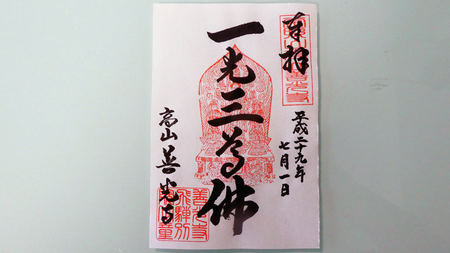 奉拝
平成二十九年
七月一日
一光三尊佛
高山善光寺
善光寺
飛騨別